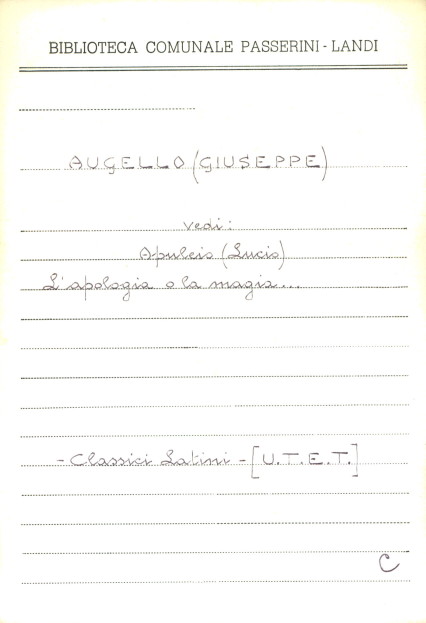 BIBLIOTECA COMUNALE PASSERINI - LANDI
AUGELLO (GIUSEPPE)
vedi:
Apuleio (Lucio)
L'apologia o la magia...
- Classici Latini - [U.T.E.T.]
C